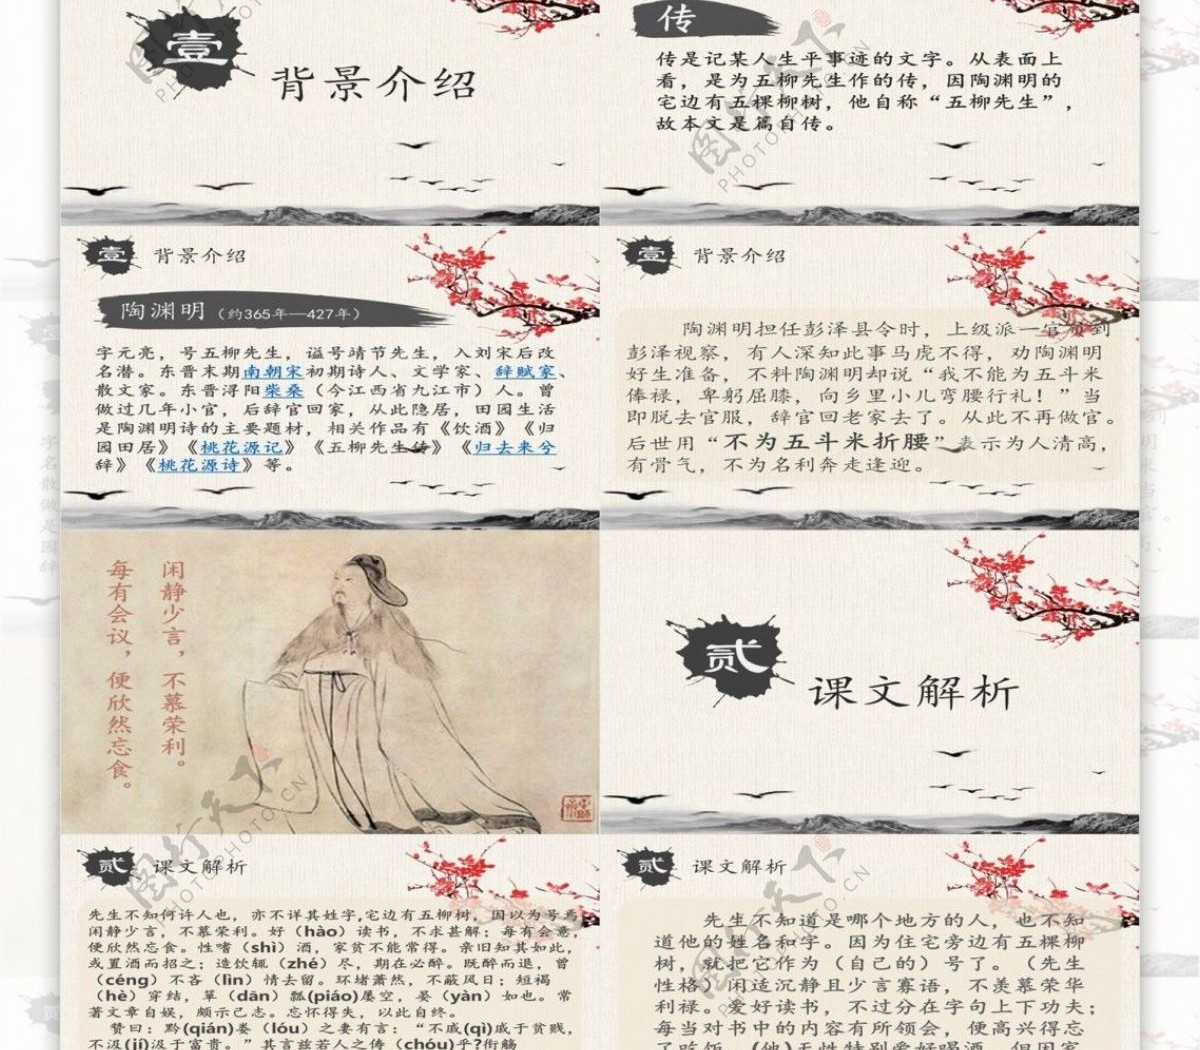 壹
背景介绍
传
传是记某人生平事迹的文字。从表面上
看，是为五柳先生作的传，因陶渊明的
宅边有五棵柳树，他自称“五柳先生”，
故本文是篇自传。
壹 背景介绍
陶渊明（约365年—427年）
字元亮，号五柳先生，谥号靖节先生，入刘宋后改
名潜。东晋末期南朝宋初期诗人、文学家、辞赋家、
散文家。东晋浔阳柴桑（今江西省九江市）人。曾
做过几年小官，后辞官回家，从此隐居，田园生活
是陶渊明诗的主要题材，相关作品有《饮酒》《归
园田居》《桃花源记》《五柳先生传》《归去来兮
辞》《桃花源诗》等。
壹 背景介绍
陶渊明担任彭泽县令时，上级派一官员到
彭泽视察，有人深知此事马虎不得，劝陶渊明
好生准备，不料陶渊明却说“我不能为五斗米
俸禄，卑躬屈膝，向乡里小儿弯腰行礼！”当
即脱去官服，辞官回老家去了。从此不再做官。
后世用“不为五斗米折腰”表示为人清高，
有骨气，不为名利奔走逢迎。
闲静少言，不慕荣利。
每有会议，便欣然忘食。
贰
课文解析
贰 课文解析
先生不知何许人也，亦不详其姓字,宅边有五柳树，因以为号焉
闲静少言，不慕荣利。好（hào）读书，不求甚解；每有会意，
便欣然忘食。性嗜（shì）酒，家贫不能常得。亲旧知其如此，
或置酒而招之；造饮辄（zhé）尽，期在必醉。既醉而退，曾
（céng）不吝（lìn）情去留。环堵萧然，不蔽风日；短褐
（hè）穿结，箪（dān）瓢(piáo)屡空，晏（yàn）如也。常
著文章自娱，颇示己志。忘怀得失，以此自终。
赞曰：黔(qián)娄（lóu）之妻有言：“不戚(qī)戚于贫贱，
不汲(jí)汲于富贵。”其言兹若人之俦（chóu)乎?衔觞
贰 课文解析
先生不知道是哪个地方的人，也不知
道他的姓名和字。因为住宅旁边有五棵柳
树，就把它作为（自己的）号了。（先生
性格）闲适沉静且少言寡语，不羡慕荣华
利禄。爱好读书，不过分在字句上下功夫；
每当对书中的内容有所领会，便高兴得忘
了吃饭。(他)天性特别爱好喝酒，但因家